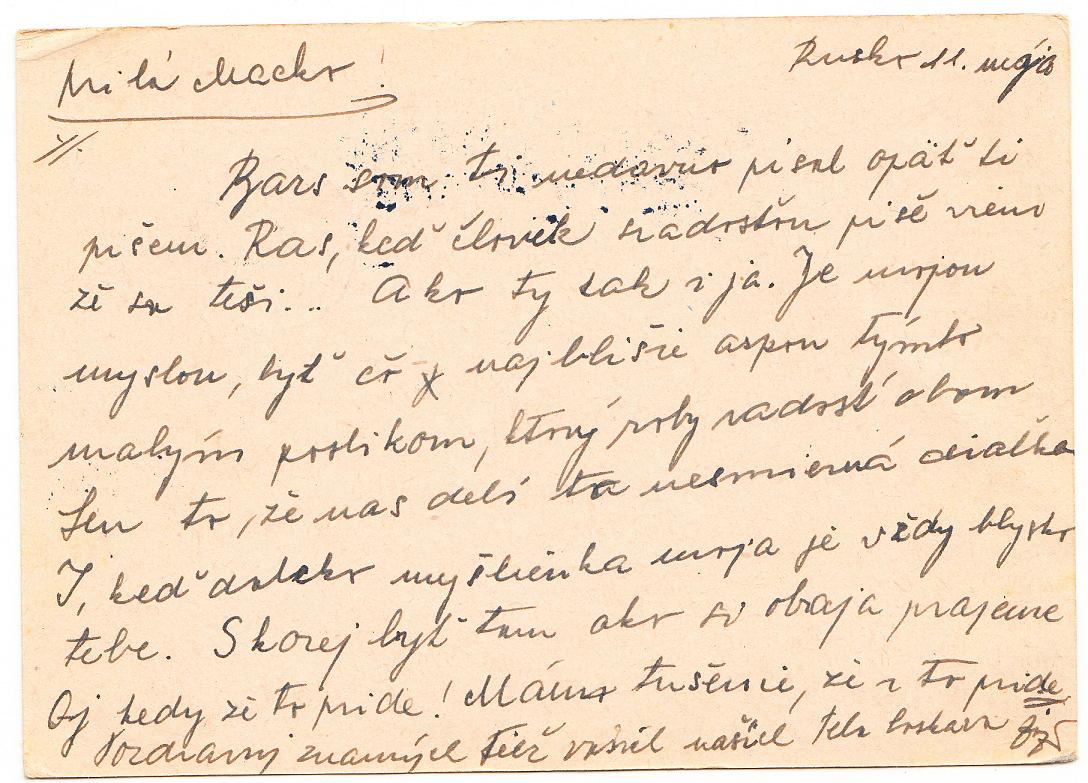 Rusko 11. mája
Milá Macko!
Bars som ti nedavno pisal opäť ti
pišem. Ras, keď človek sradosťou pišě viem
žě sa teši... Ako ty tak i ja. Je mojou
myslou, byť čo najbližšie aspon týmto
malým poslikom, ktorý roby radosť obom
Len to, žě nas delí ta nesmierná dialka
I, keď daleko myšlienka moja je vždy blysko
tebe. Skorej byť tam ako si obaja prajeme
Oj kedy žě to pride! Máme tušěnie, žě i to pride,
Pozdravuj znamých tiež vašich našich